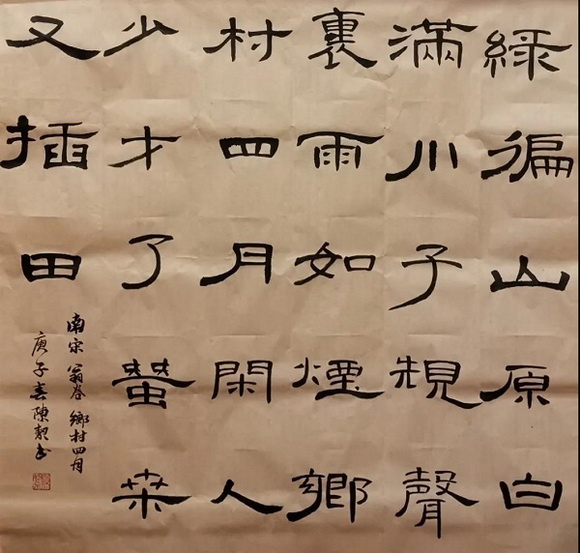 綠徧山原白
滿川子規聲
裏雨如煙鄉
村四月閑人
少才了蠶桒
又插田
南宋 翁卷 鄉村四月
庚子春陳书